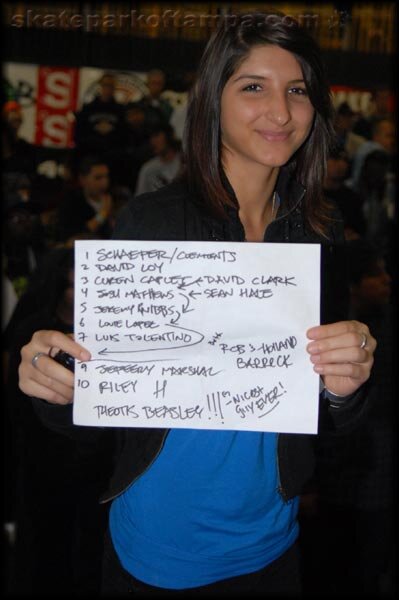 skateparkoftampa.com
S
S
1 SCHAEFER/CLEMENTS
2 DAVID LOY
3 CUREN CAPLES DAVID CLARK
4 JOSH MATHEWS SEAN HALE
5 JEREMY
6 LOVE LOPEZ
7 LUIS TOLENTINO
ROB & HOLLAND
BARRECK
9 JEFFEERY MARSHAL
10 RILEY H
THEOTIS BEASLEY!!! - NICEST
GUY EVER!